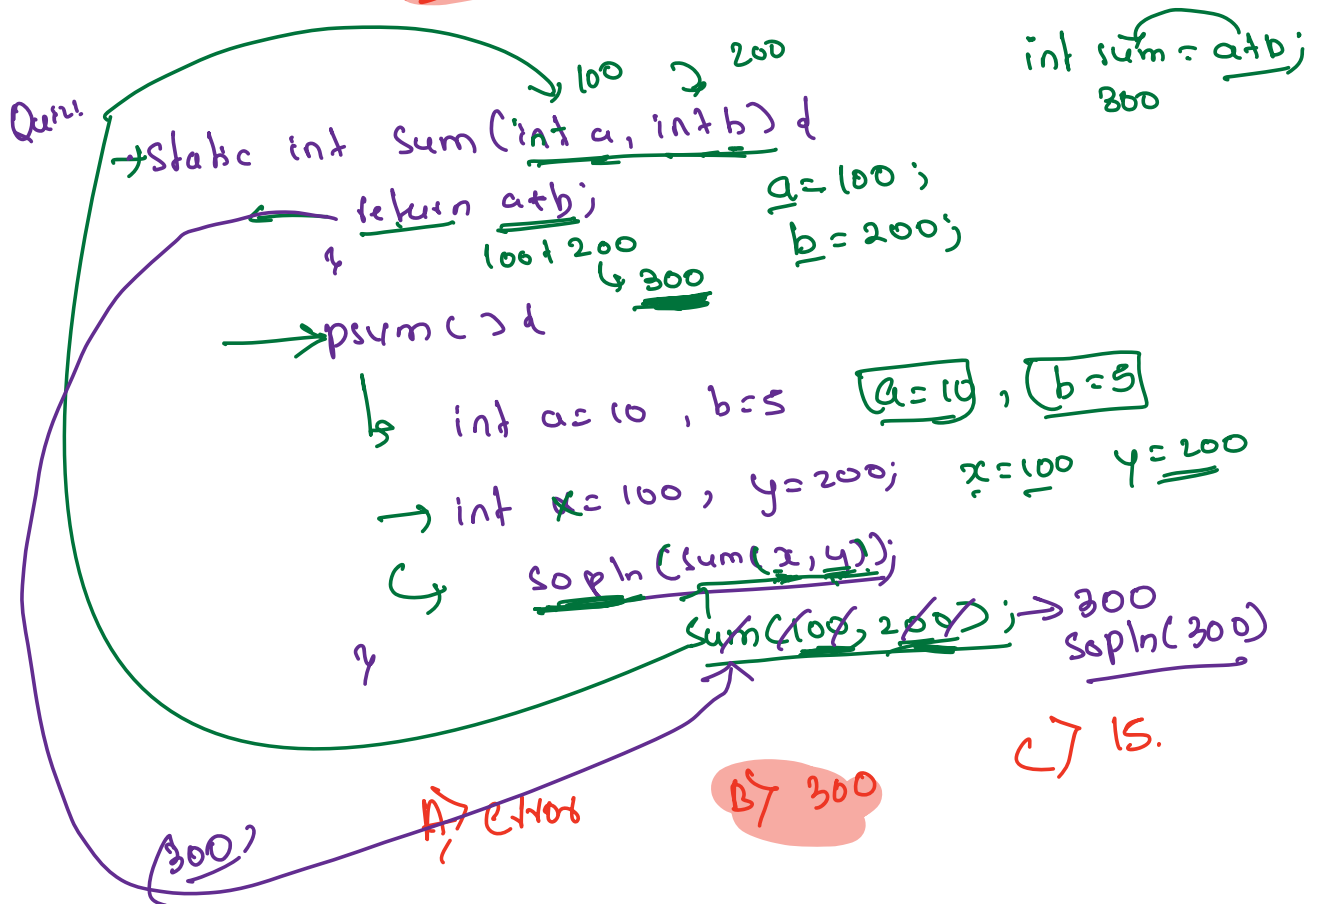 100 200
int sum = a+b;
300
Quiz!
static int sum(int a, int b) {
return a+b;
a = 100;
}
100 + 200
b = 200;
300
psum() {
int a = 10, b = 5
a = 10, b = 5
int x = 100, y = 200;
x = 100 y = 200
sopln(sum(x, y));
sum(100, 200); → 300
sopln(300)
}
C) 15.
A) error
B) 300
300